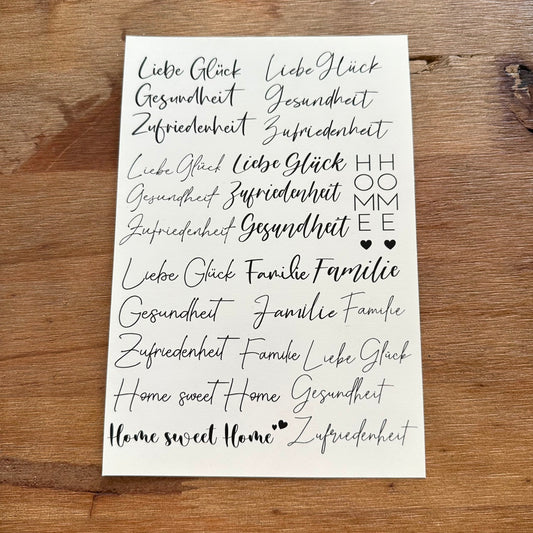 Liebe Glück Liebe Glück
Gesundheit Gesundheit
Zufriedenheit Zufriedenheit
Liebe Glück Liebe Glück
Gesundheit Zufriedenheit
Zufriedenheit Gesundheit
HOME HOME
Liebe Glück Familie Familie
Gesundheit Familie Familie
Zufriedenheit Familie Liebe Glück
Home sweet Home Gesundheit
Home sweet Home Zufriedenheit